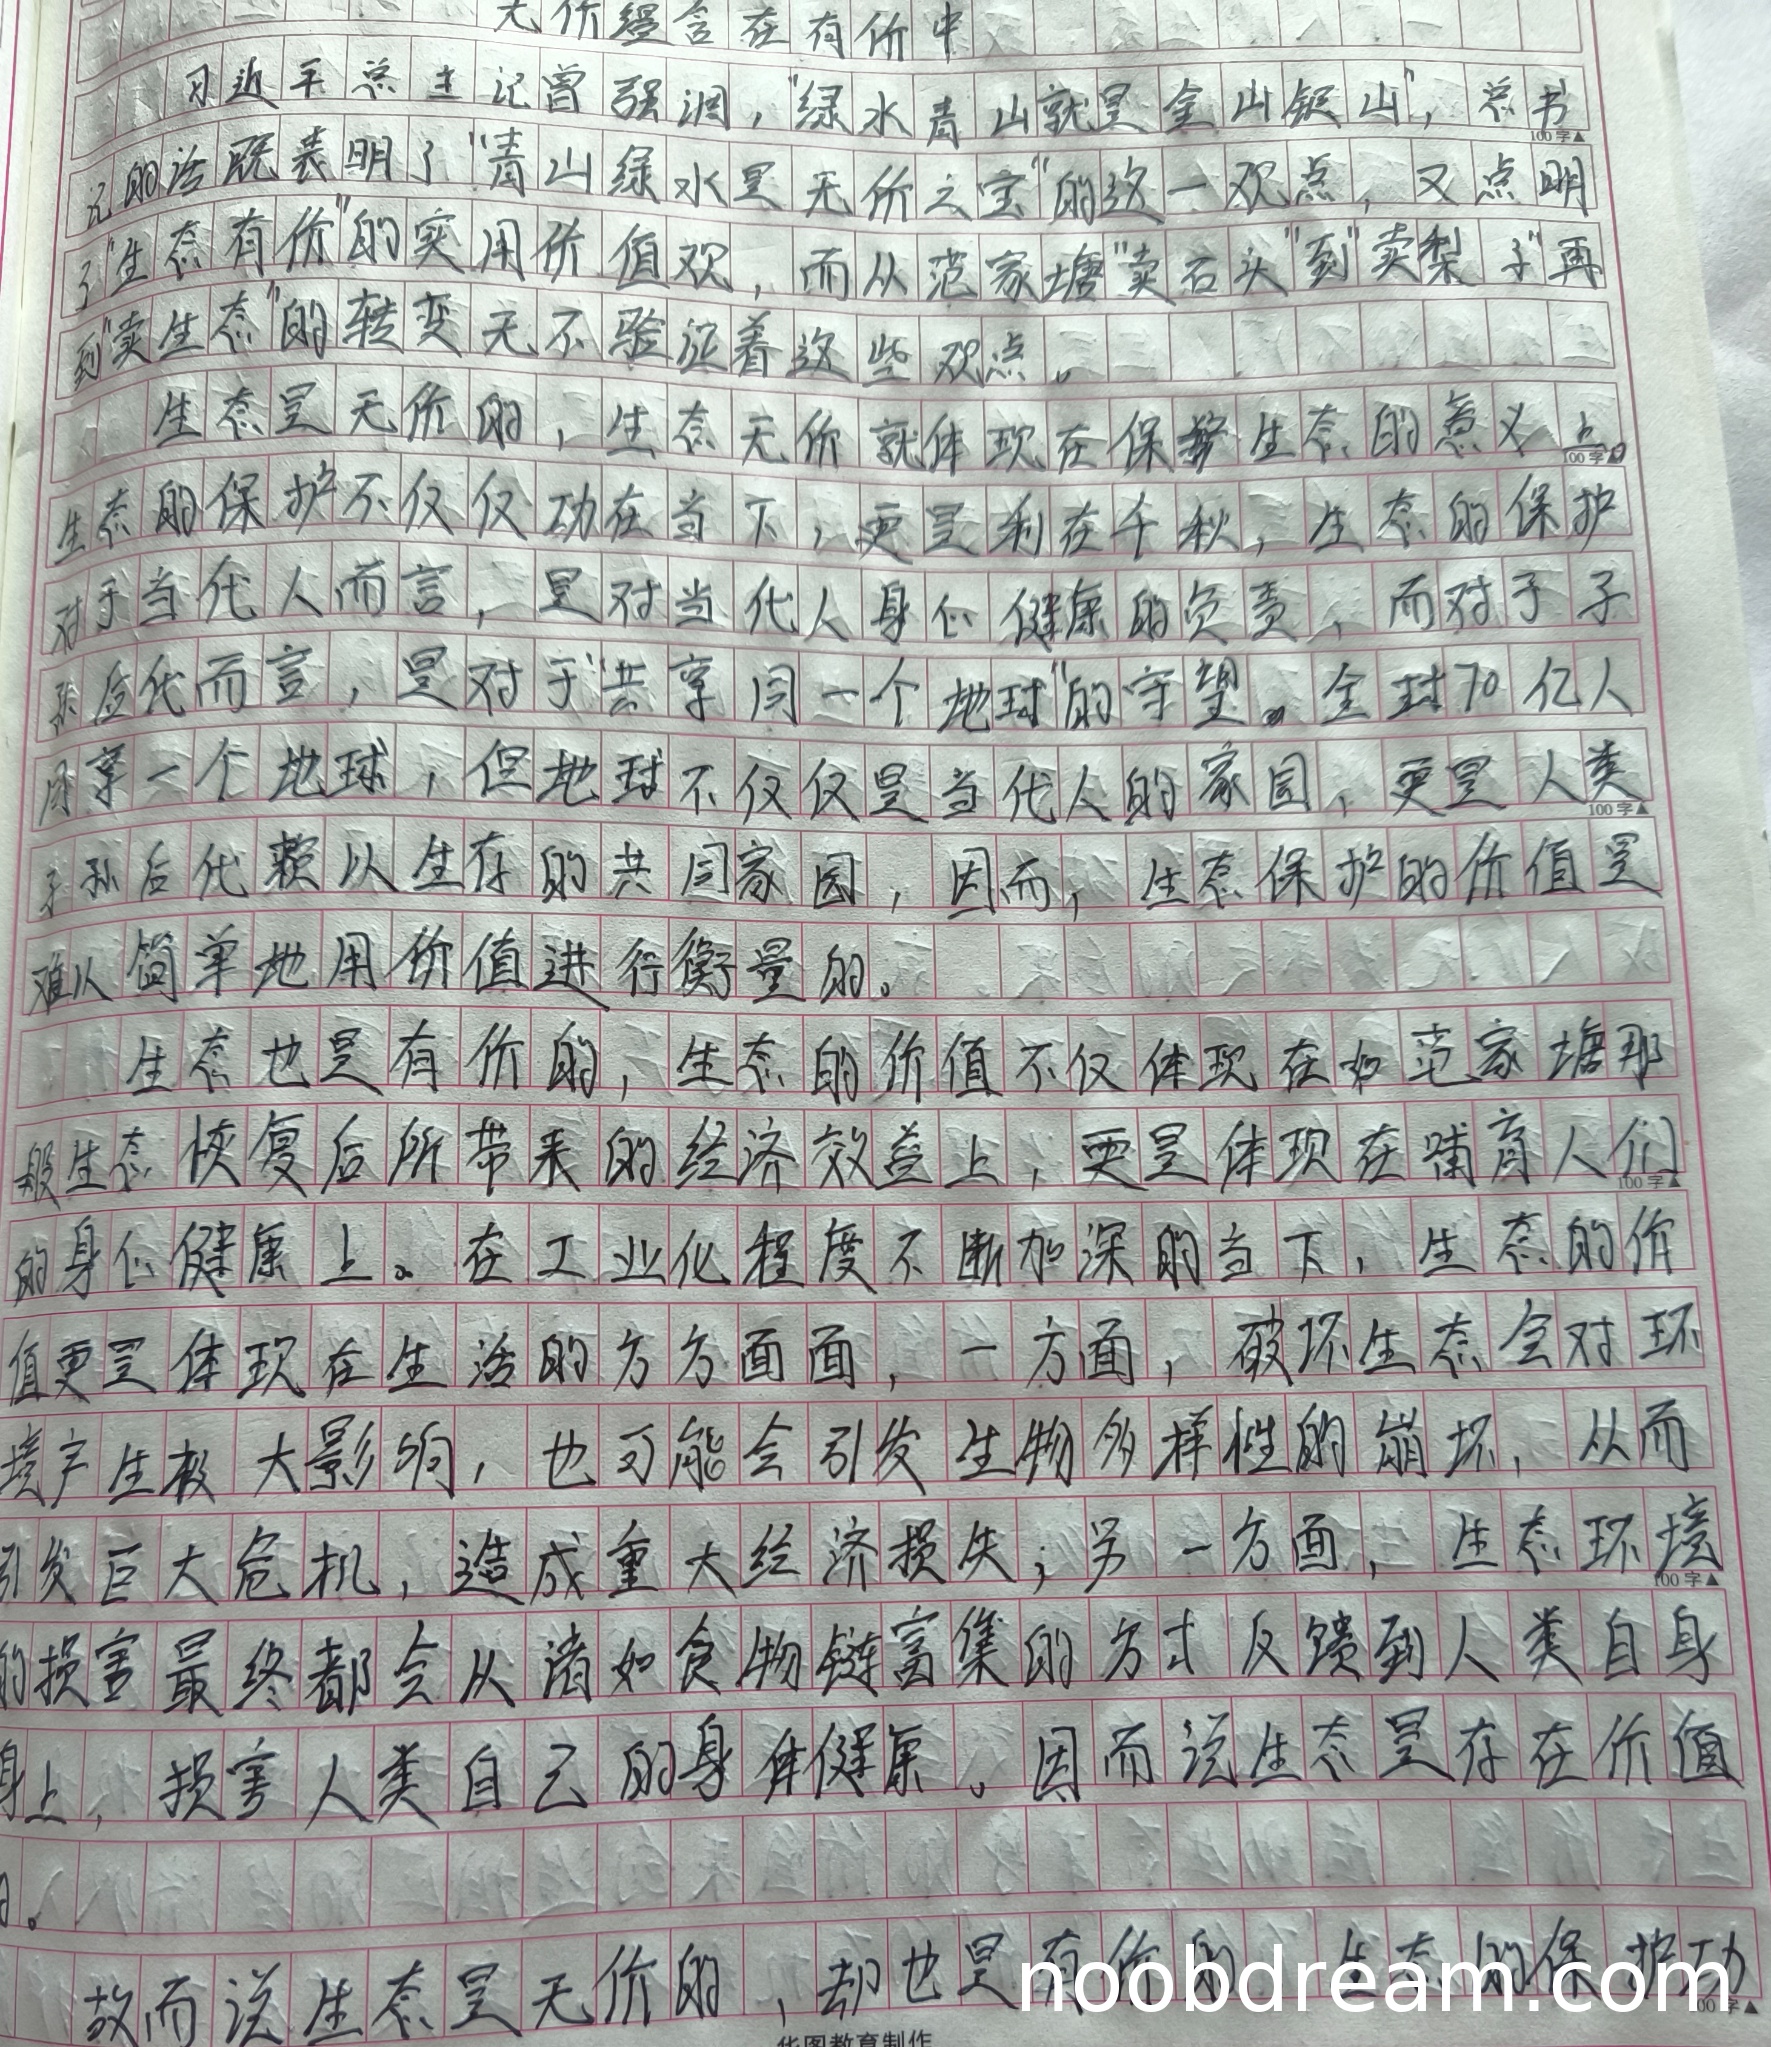 无价蕴含在有价中
习近平总书记曾强调,"绿水青山就是金山银山",总书
100字▲
记的话既表明了"青山绿水是无价之宝"的这一观点,又点明
了"生态有价"的实用价值观,而从范家塘"卖石头"到"卖梨子"再
到"卖生态"的转变无不验证着这些观点。
生态是无价的,生态无价就体现在保护生态的意义上。
100字▲
生态的保护不仅仅功在当下,更是利在千秋,生态的保护
对于当代人而言,是对当代人身心健康的负责,而对于子
孙后代而言,是对于"共享同一个地球"的守望。全球70亿人
同享一个地球,但地球不仅仅是当代人的家园,更是人类
100字▲
子孙后代赖以生存的共同家园,因而,生态保护的价值是
难以简单地用价值进行衡量的。
生态也是有价的,生态的价值不仅体现在如范家塘那
般生态恢复后所带来的经济效益上,更是体现在哺育人们
100字▲
的身心健康上。在工业化程度不断加深的当下,生态的价
值更是体现在生活的方方面面,一方面,破坏生态会对环
境产生极大影响,也可能会引发生物多样性的崩坏,从而
引发巨大危机,造成重大经济损失;另一方面,生态环境
100字▲
的损害最终都会从诸如食物链富集的方式反馈到人类自身
身上,损害人类自己的身体健康。因而说生态是存在价值
的。
故而说生态是无价的,却也是有价的 生态的保护功
00字▲
华图教育制作
noobdream.com